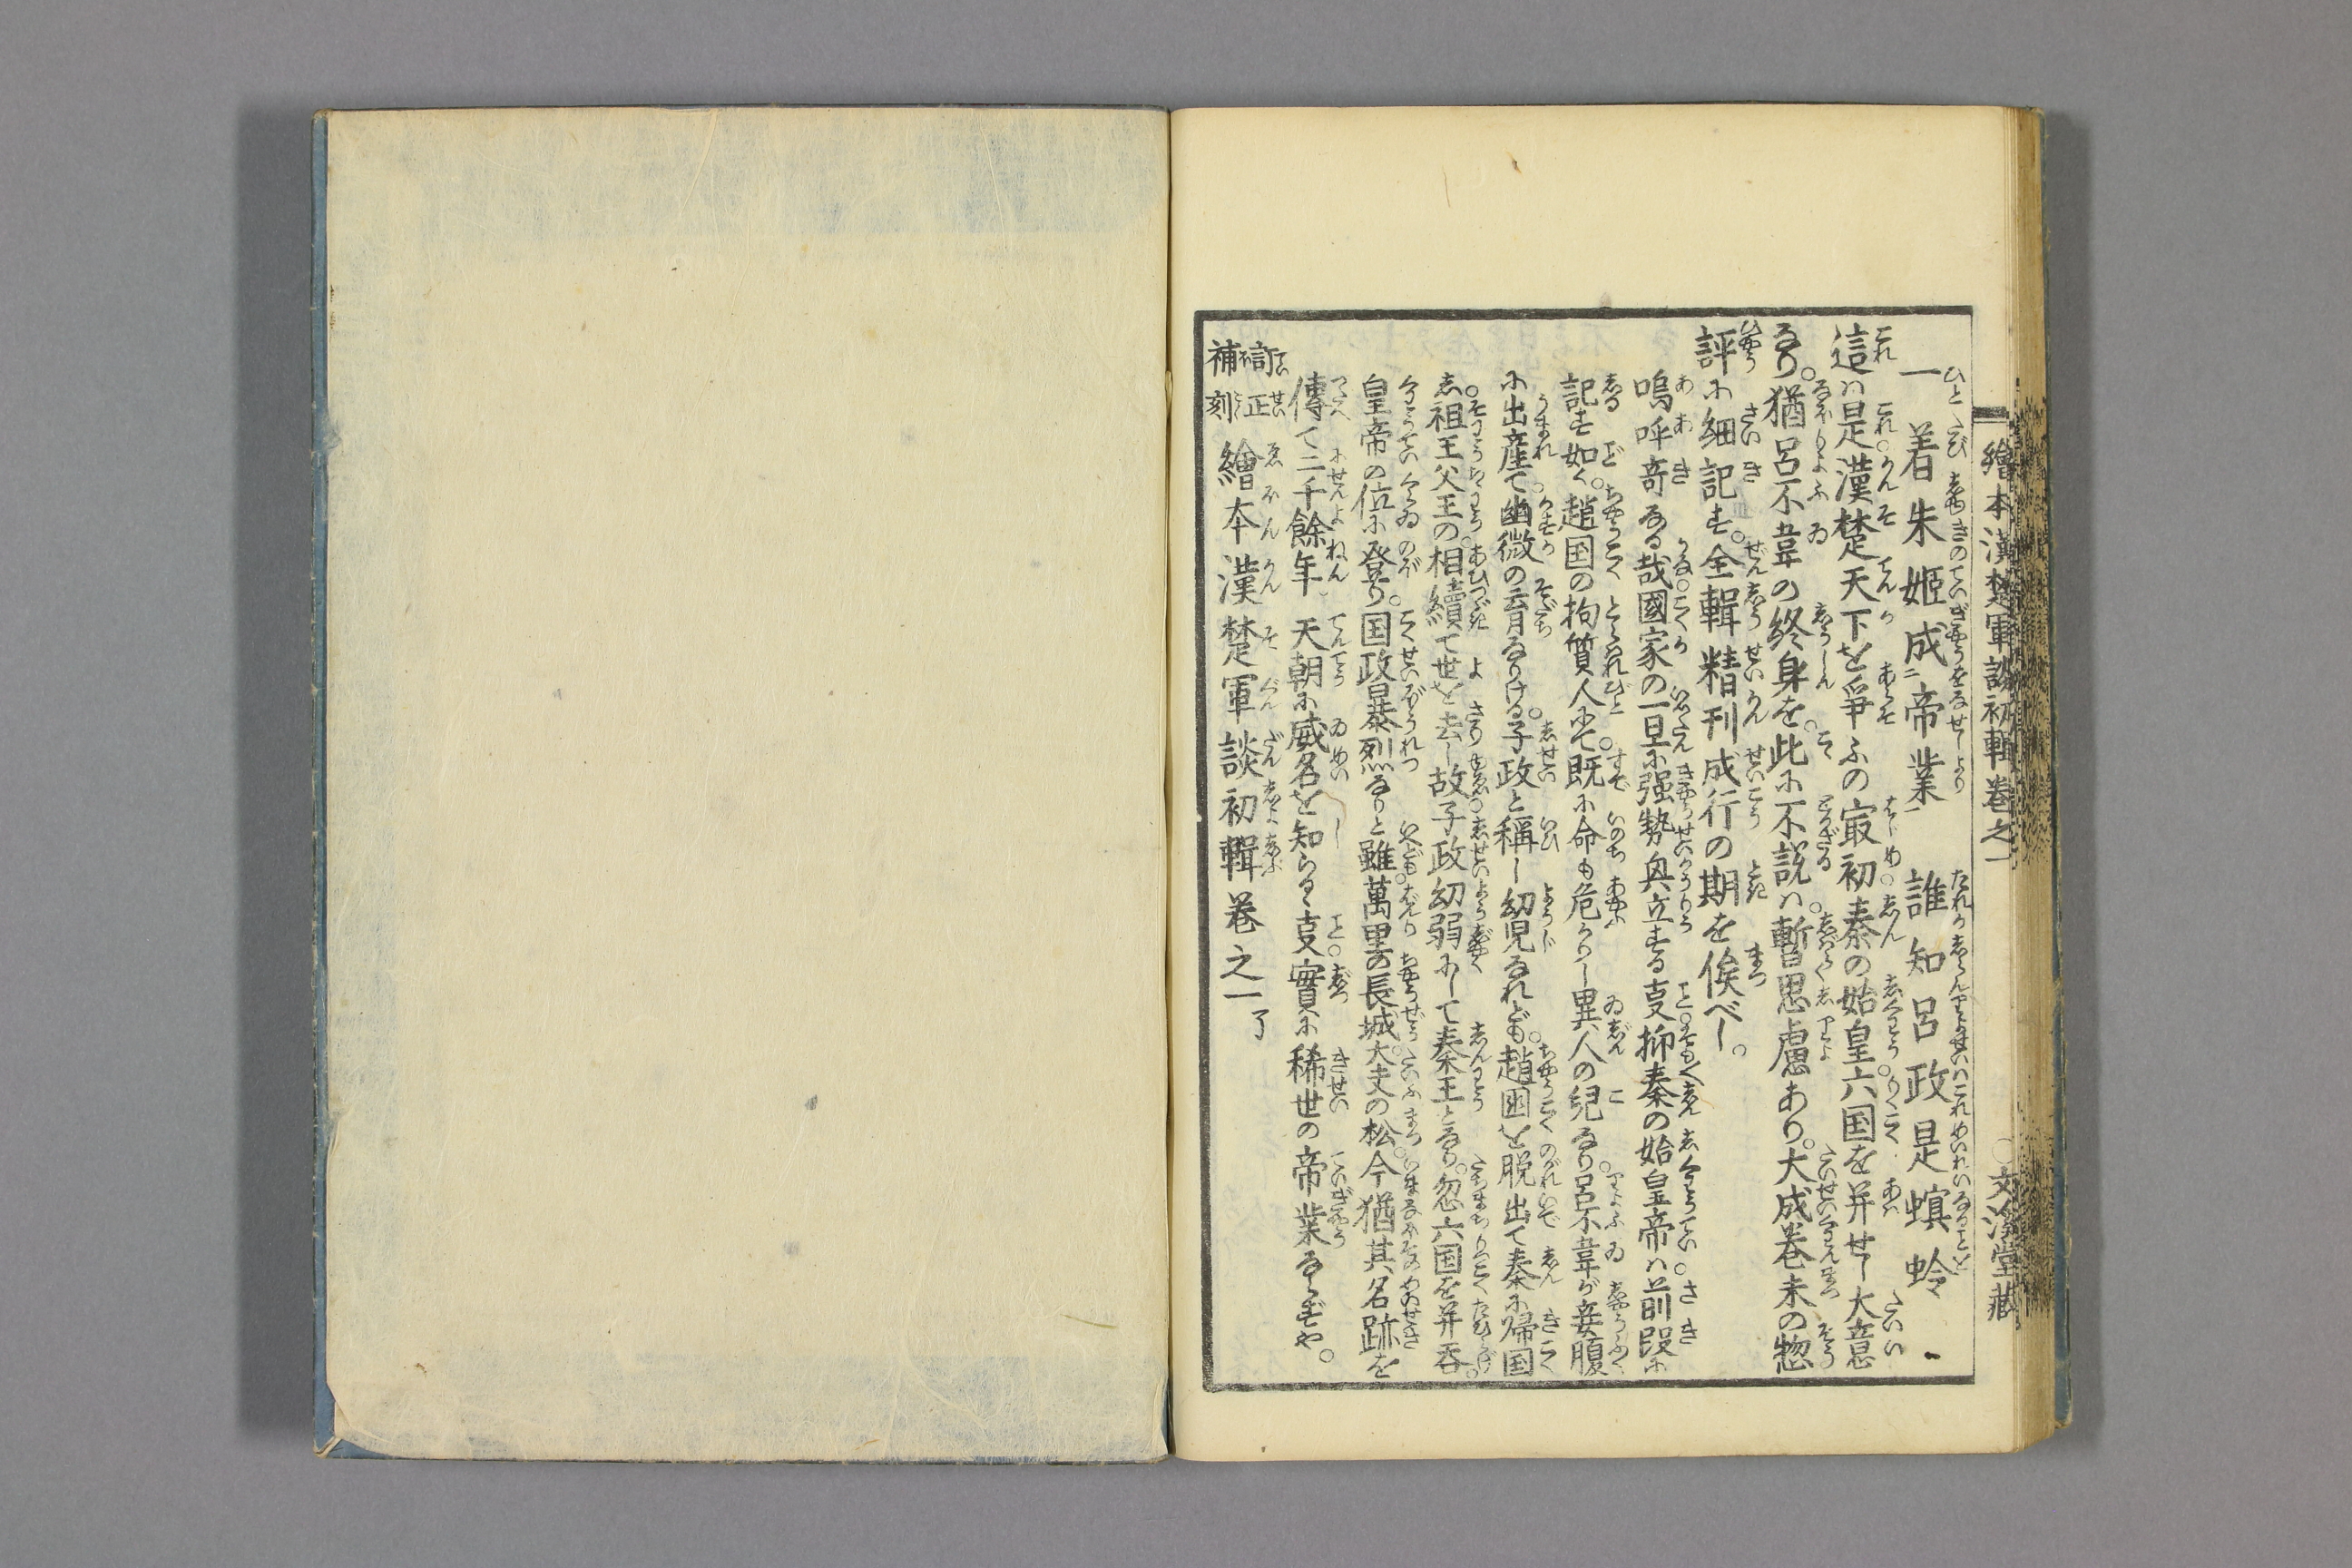 繪本漢楚軍談初輯巻之一
文溪堂藏
一着朱姬成二帝業一 誰知呂政是螟蛉
這ハ是漢楚天下を爭ふの㝡初秦の始皇六国を并せし大意
なり。猶呂不韋の終身を。此に不説ハ。暫思慮あり。大成巻末の惣
評に細記す。全輯精刊成行の期を俟べし。
嗚呼奇なる哉國家の一旦に强勢奥立する叓抑秦の始皇帝ハ前段に
記す如く。趙国の拘質人にて。既に命も危かりし異人の兒なり。呂不韋が妾腹
に出産て幽微の育なりける。子政と稱し幼児なれども。趙国を脱出て秦に帰国
し。祖王父王の相續て世を去し故子政幼弱にして秦王となり。忽六国を并呑。
皇帝の位に登り。国政暴烈なりと雖萬里の長城。大夫の松。今猶其名跡を
傳て二千餘年 天朝に威名を知らるゝ叓實に稀世の帝業ならずや。
訂正補刻 繪本漢楚軍談初輯巻之一了